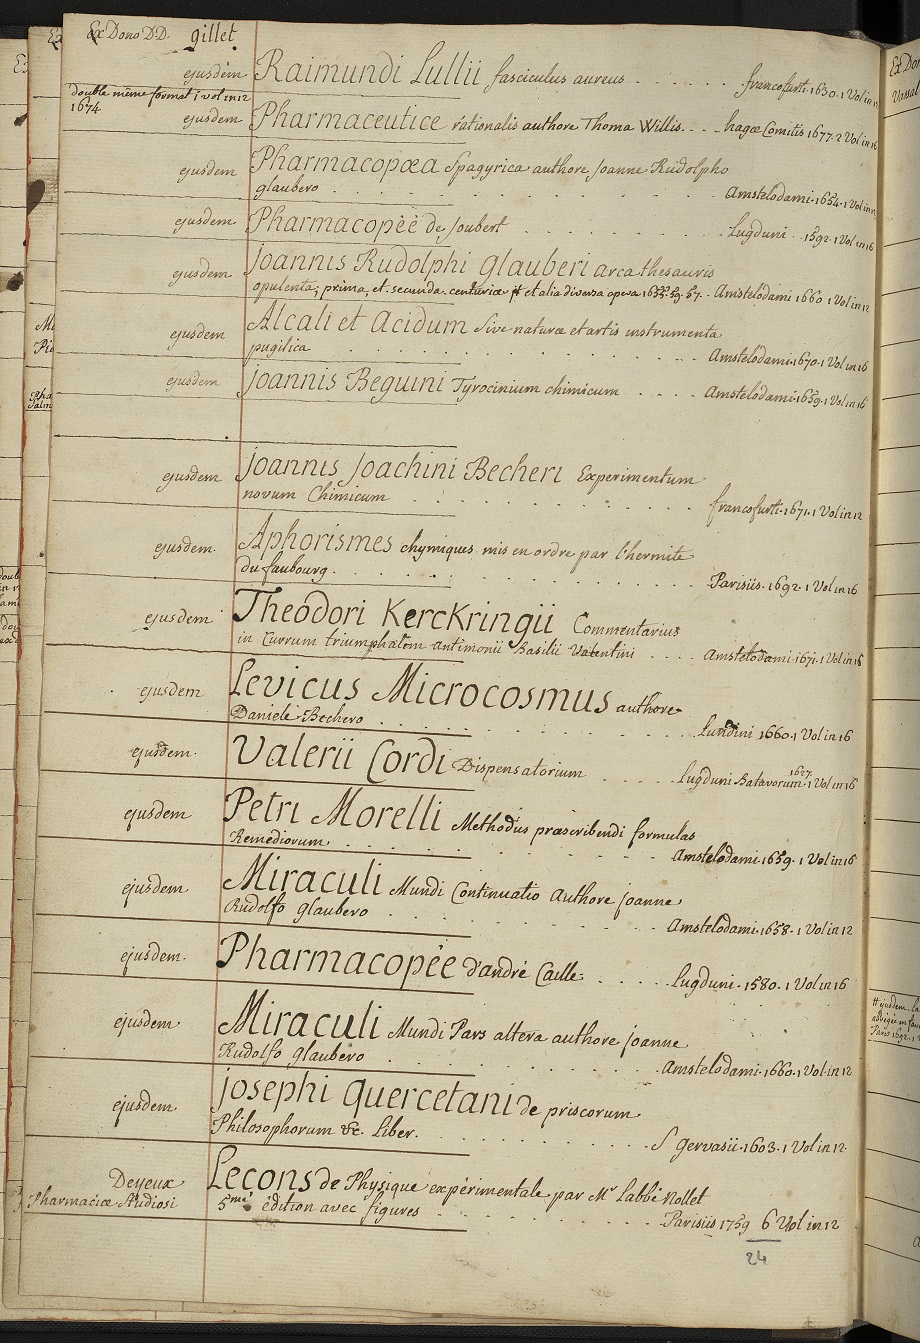 Ex Dono D.D. gillet
ejusdem Raimundi Lullii fasciculus aureus francofurti. 1630. 1 Vol in 12
double même format 1 vol in 12
1674
ejusdem Pharmaceutice rationalis authore Thoma Willis. hagæ Comitis 1677. 2 Vol in 16
ejusdem Pharmacopœa Spagyrica authore Joanne Rudolpho
glaubero Amstelodami. 1654. 1 Vol in 12
ejusdem Pharmacopèè de Joubert Lugduni. 1592. 1 Vol in 16
ejusdem Joannis Rudolphi Glauberi arca thesauris
opulenta; prima, et secunda centuriæ et alia diversa opera Amstelodami 1660 1 Vol in 12
ejusdem Alcali et Acidum Sive naturæ et artis instrumenta
pugilica Amstelodami. 1670. 1 Vol in 16
ejusdem Joannis Beguini Tyrocinium chimicum Amstelodami. 1659. 1 Vol in 16
ejusdem Joannis Joachini Becheri Experimentum
novum Chimicum francofurti. 1671. 1 Vol in 12
ejusdem. Aphorismes chymiques mis en ordre par l'hermite
du faubourg. Parisiis. 1692. 1 Vol in 16
ejusdem Theodori Kerckringii Commentarius
in Currum triumphalem antimonii Basilii Valentini Amstelodami. 1671. 1 Vol in 16
ejusdem Levicus Microcosmus authore
Daniele Bechero Lundini 1660. 1 Vol in 16
ejusdem. Valerii Cordi Dispensatorium Lugduni Batavorum. 1627. 1 Vol in 16
ejusdem Petri Morelli Methodus præscribendi formulas
Remediorum Amstelodami. 1659. 1 Vol in 16
ejusdem Miraculi Mundi Continuatio Authore Joanne
Rudolfo glaubero Amstelodami. 1658. 1 Vol in 12
ejusdem. Pharmacopée d'andré Caille. Lugduni. 1580. 1 Vol in 16
ejusdem Miraculi Mundi Pars altera authore Joanne
Rudolfo glaubero Amstelodami. 1660. 1 Vol in 12
ejusdem Josephi Quercetani de priscorum
Philosophorum &c. Liber. S gervasii. 1603. 1 Vol in 12.
Deyeux Leçons de Physique expérimentale par Mr Labbé Nollet
Pharmaciæ Studiosi 5me édition avec figures Parisiis 1759 6 Vol in 12
24